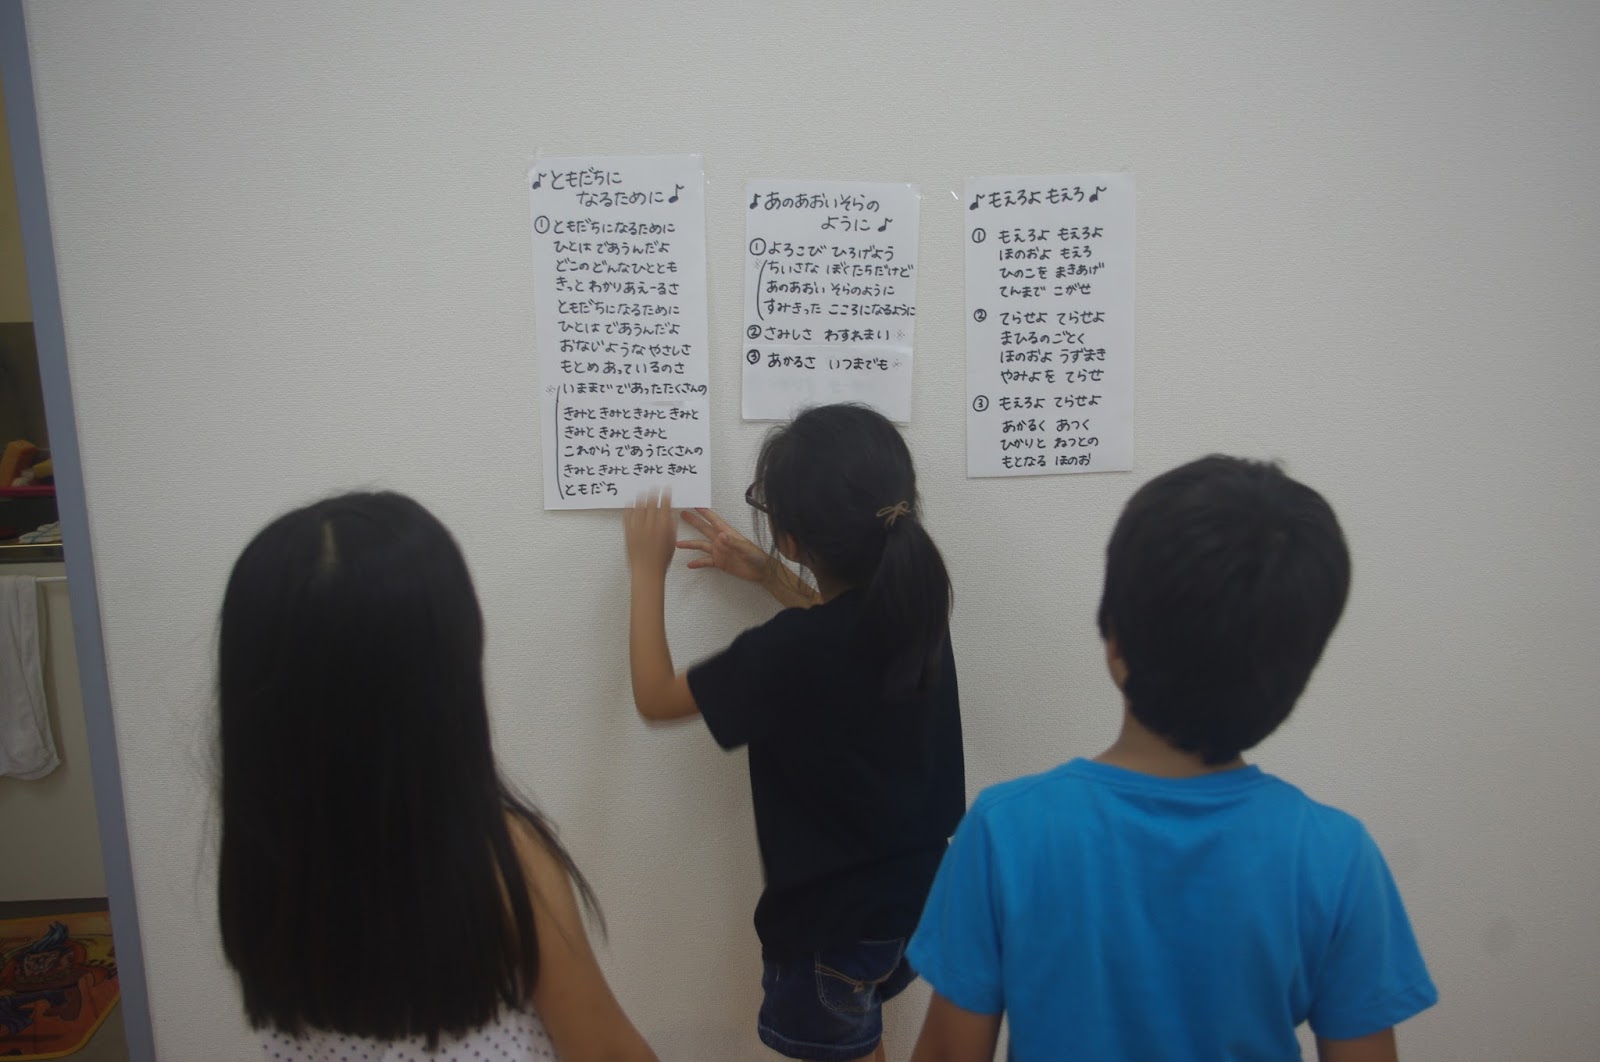 ♪ともだちに
なるために♪
①ともだちになるために
ひとは であうんだよ
どこの どんなひととも
きっと わかりあえーるさ
ともだちになるために
ひとは であうんだよ
おなじような やさしさ
もとめ あっているのさ
※いままで であったたくさんの
きみと きみと きみと きみと
きみと きみと きみと
これから であうたくさんの
きみと きみと きみと きみと
ともだち
♪あのあおいそらの
ように♪
①よろこび ひろげよう
※ちいさな ぼくたちだけど
あのあおい そらのように
すみきった こころになるように
②さみしさ わすれまい※
③あかるさ いつまでも※
♪もえろよ もえろ♪
①もえろよ もえろよ
ほのおよ もえろ
ひのこを まきあげ
てんまで こがせ
②てらせよ てらせよ
まひるのごとく
ほのおよ うずまき
やみよを てらせ
③もえろよ てらせよ
あかるく あつく
ひかりと ねつとの
もとなる ほのお